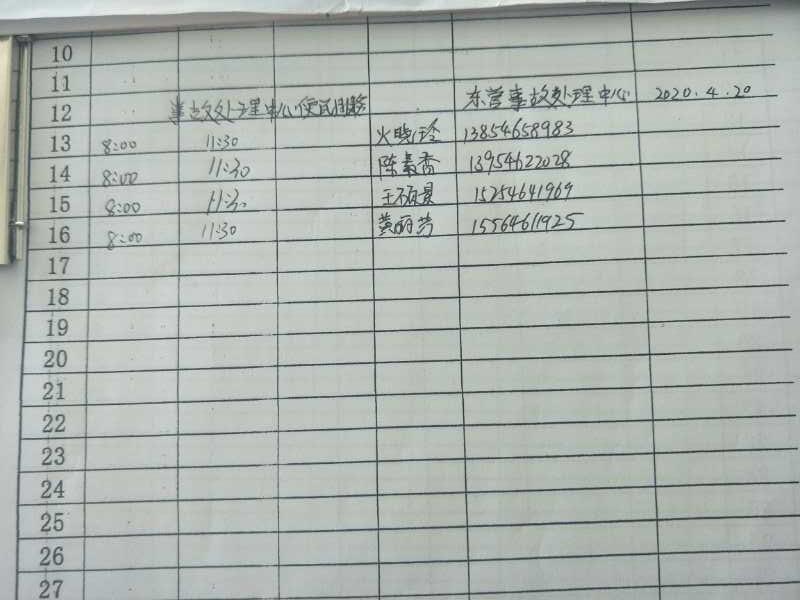 10
11
12 事故处理中心便民服务 东营事故处理中心 2020.4.20
13 8:00 11:30 火晓玲 13854658983
14 8:00 11:30 陈素香 13954622028
15 8:00 11:30 15254641969
16 8:00 11:30 黄丽芳 15564611925
17
18
19
20
21
22
23
24
25
26
27